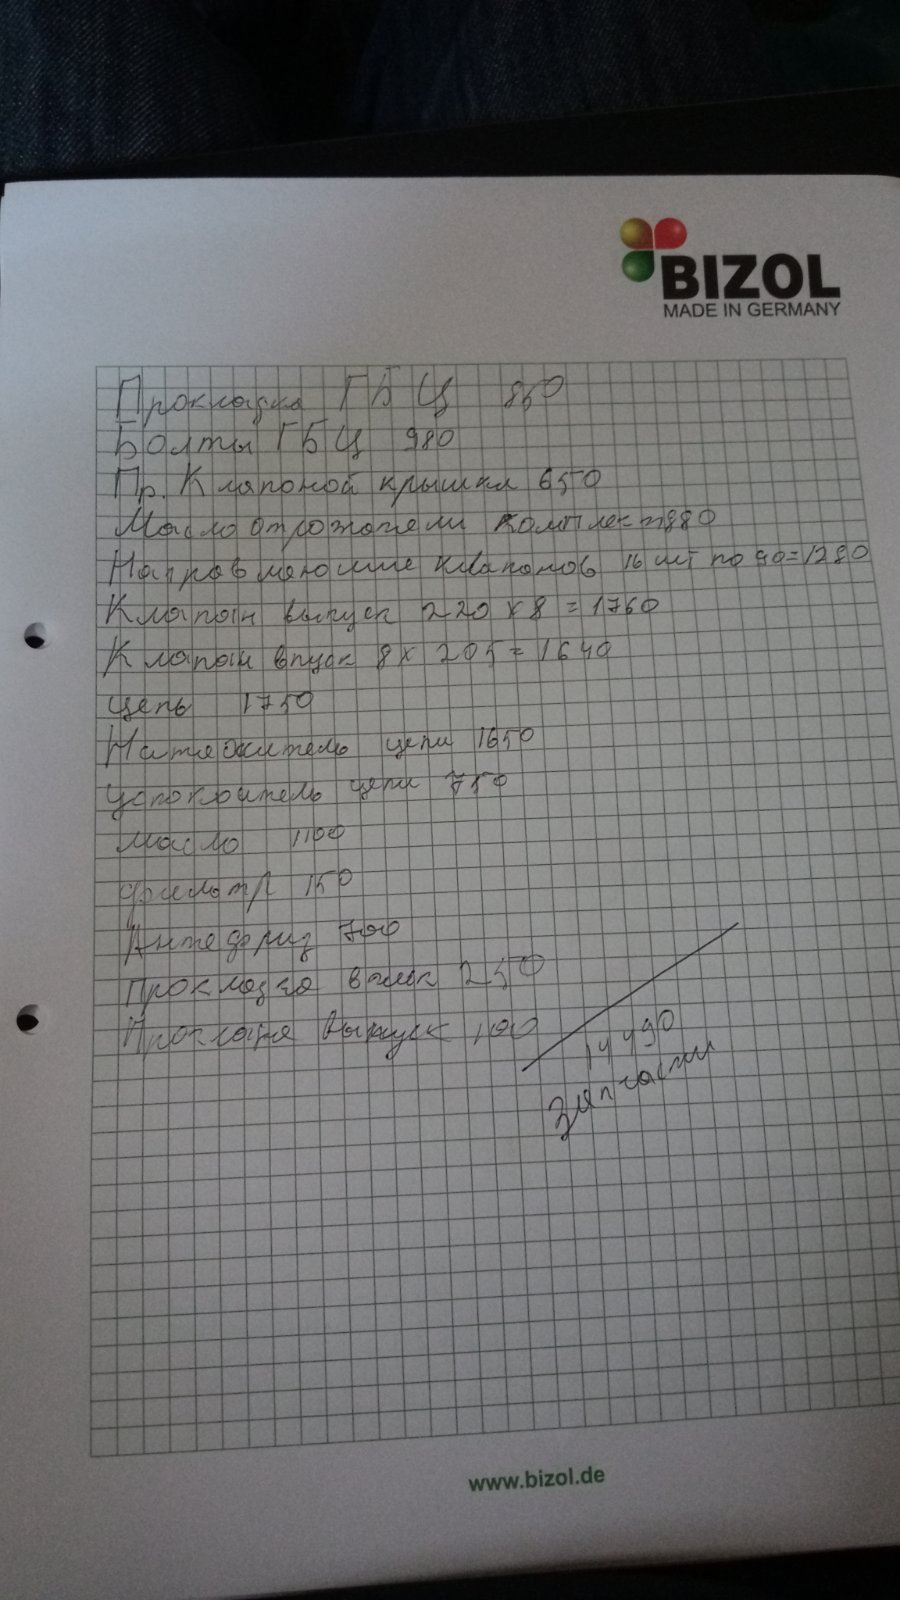 BIZOL
MADE IN GERMANY
Прокладка ГБЦ 850
Болты ГБЦ 980
Пр. Клапоной крышкл 650
Масло отрожатели комплект 880
Направляющие клапонов 16 шт по 90=1280
Клапан выпуск 220 х 8 = 1760
Клапан впуск 8 х 205 = 1640
цепь 1750
Натяжитель цепи 1650
успокоитель цепи 750
Масло 1100
фильтр 150
Антефриз 700
Прокладка впуск 250
Прокладка Выпуск 100
14490
Запчасти
www.bizol.de